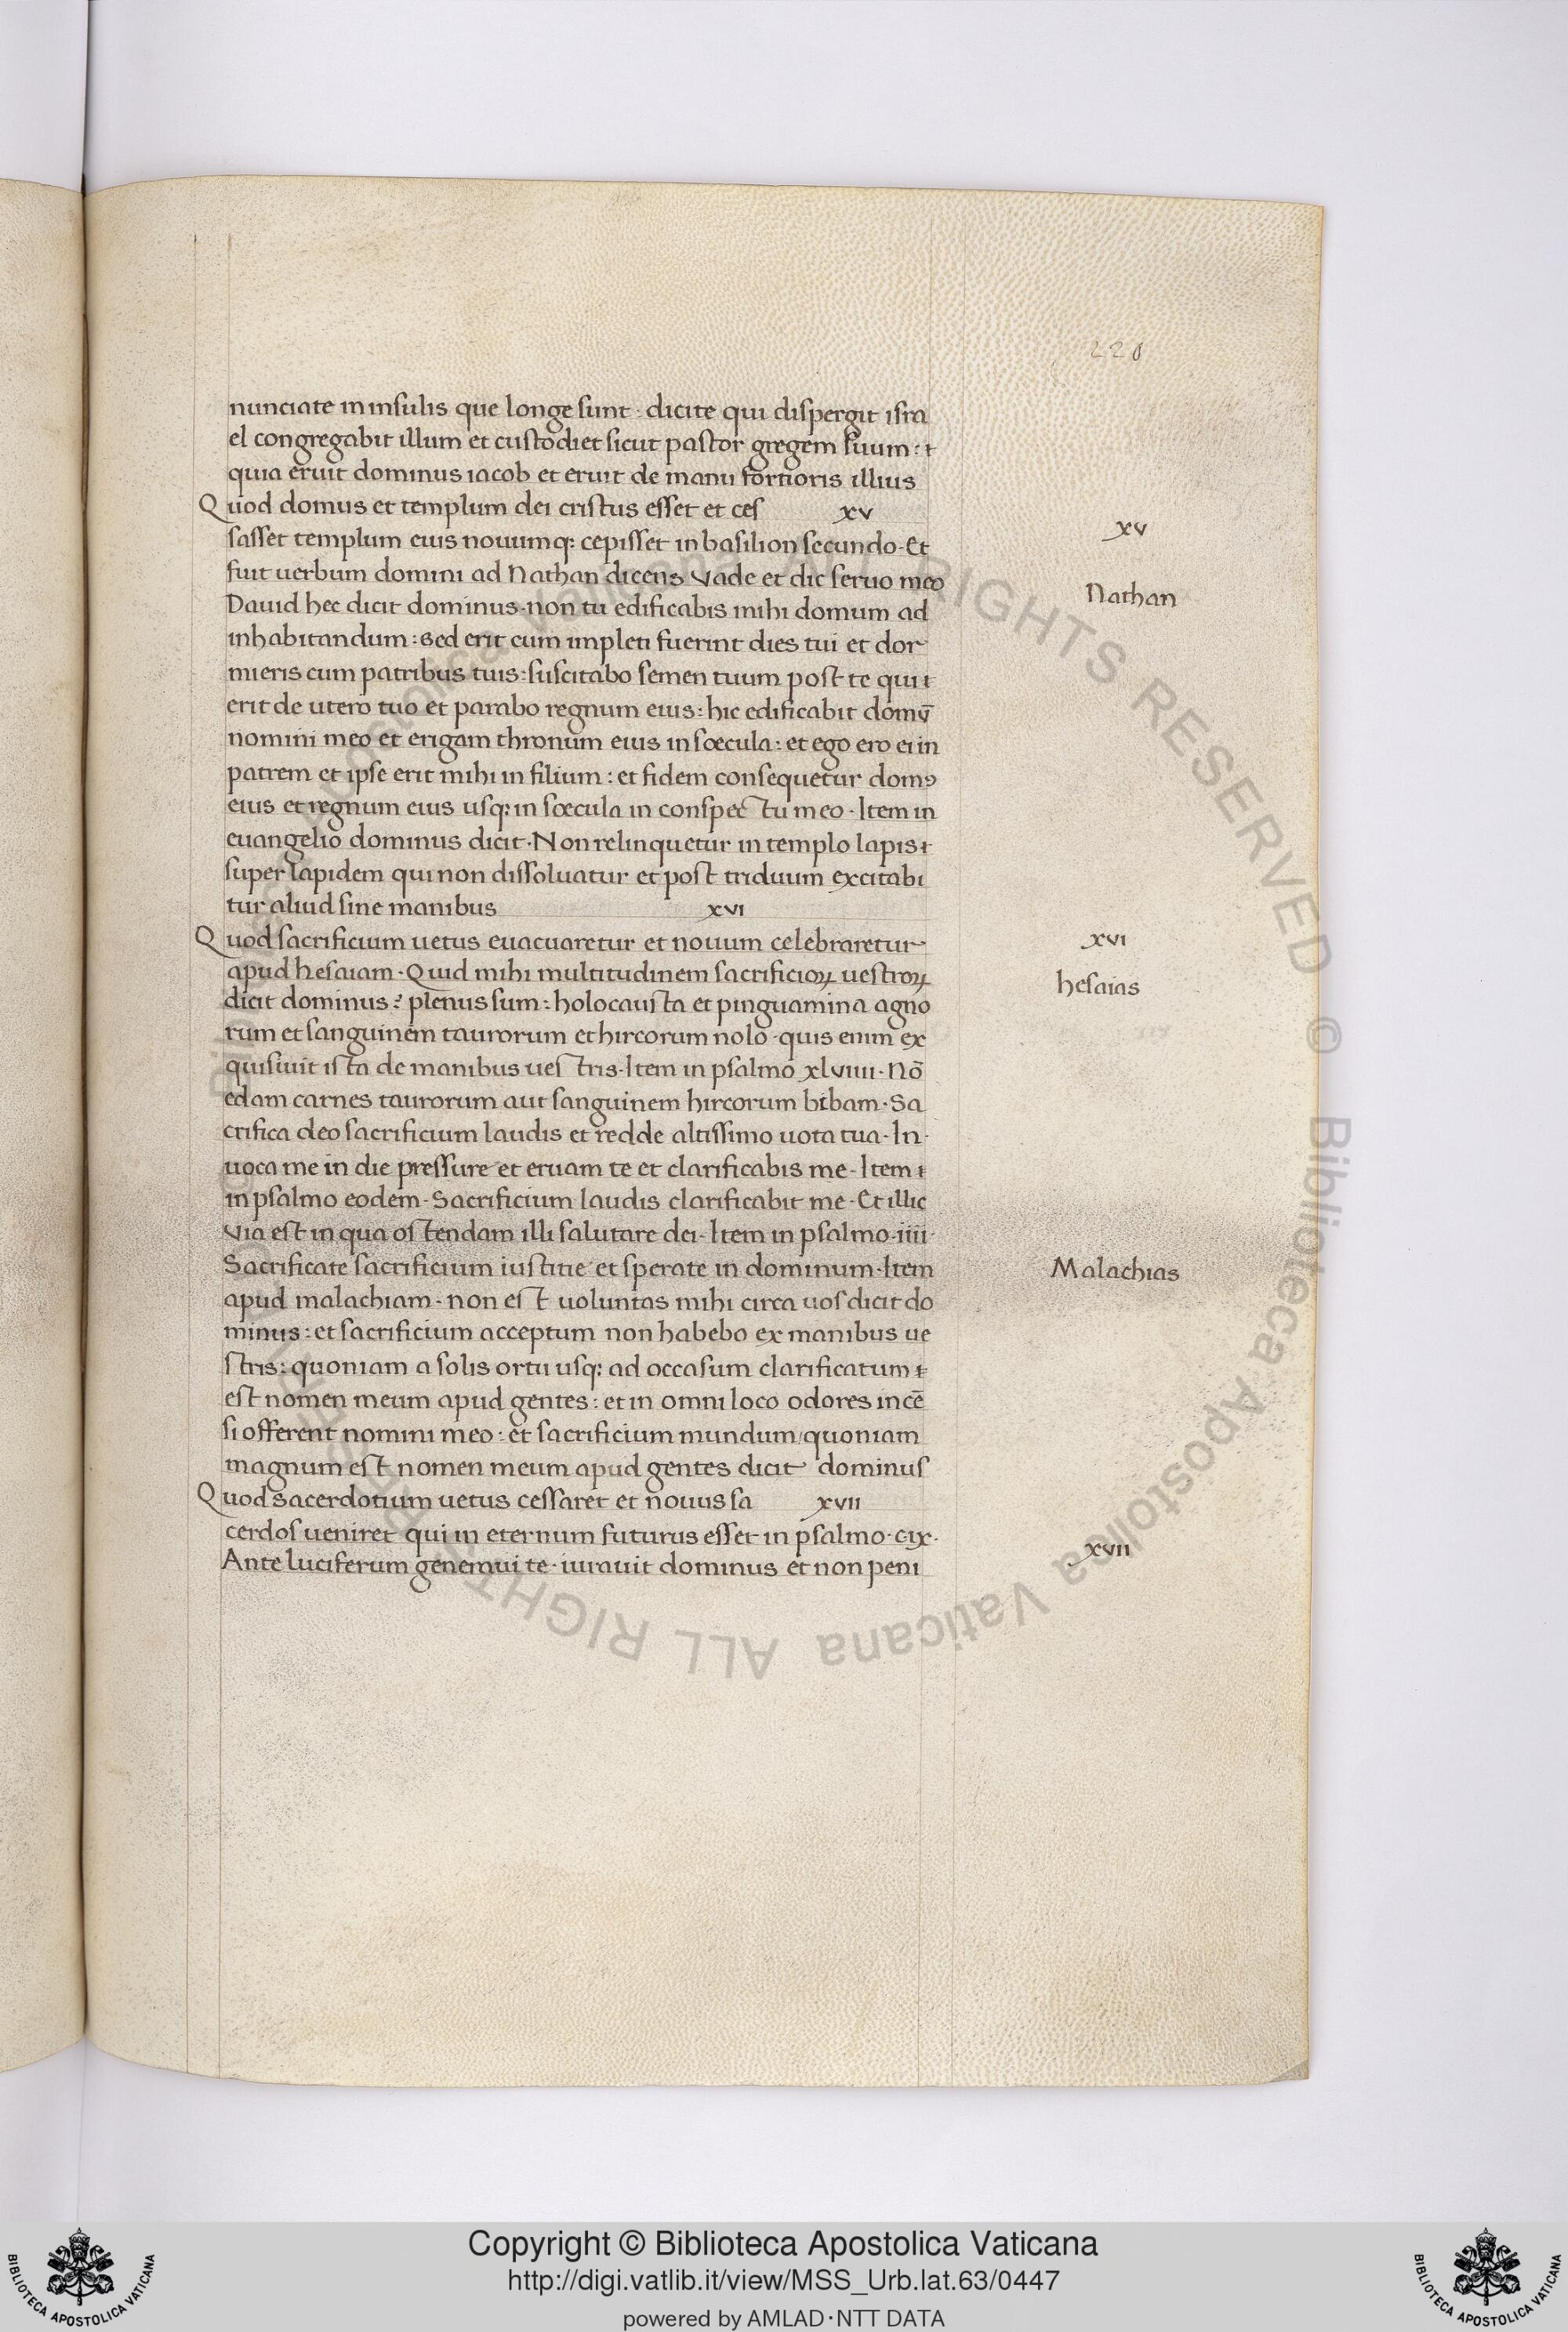 220
nunciate in insulis que longe sunt · dicite qui dispergit isra
el congregabit illum et custodiet sicut pastor gregem suum :
quia eruit dominus iacob et eruit de manu fortioris illius
Quod domus et templum dei cristus esset et ces xv
sasset templum eius nouumq: cepisset in basilion secundo · Et
fuit uerbum domini ad Nathan dicens Vade et dic seruo meo
Dauid hec dicit dominus · non tu edificabis mihi domum ad
inhabitandum : sed erit cum impleti fuerint dies tui et dor
mieris cum patribus tuis : suscitabo semen tuum post te qui
erit de utero tuo et parabo regnum eius : hic edificabit domū
nomini meo et erigam thronum eius in sœcula : et ego ero ei in
patrem et ipse erit mihi in filium : et fidem consequetur domꝰ
eius et regnum eius usq: in sœcula in conspectu meo · Item in
euangelio dominus dicit · Non relinquetur in templo lapis
super lapidem qui non dissoluatur et post triduum excitabi
tur aliud sine manibus xvi
Quod sacrificium uetus euacuaretur et nouum celebraretur
apud hesaiam · Quid mihi multitudinem sacrificioꝝ uestroꝝ
dicit dominus ? plenus sum : holocausta et pinguamina agno
rum et sanguinem taurorum et hircorum nolo · quis enim ex
quisiuit ista de manibus uestris · Item in psalmo xlviiii · Nō
edam carnes taurorum aut sanguinem hircorum bibam · Sa
crifica deo sacrificium laudis et redde altissimo uota tua · In ·
uoca me in die pressure et eruam te et clarificabis me · Item
in psalmo eodem · Sacrificium laudis clarificabit me · Et illic
via est in qua ostendam illi salutare dei · Item in psalmo · iiii ·
Sacrificate sacrificium iustitie et sperate in dominum · Item
apud malachiam · non est uoluntas mihi circa uos dicit do
minus : et sacrificium acceptum non habebo ex manibus ue
stris : quoniam a solis ortu usq: ad occasum clarificatum
est nomen meum apud gentes : et in omni loco odores incē
si offerent nomini meo : et sacrificium mundum / quoniam
magnum est nomen meum apud gentes dicit dominus
Quod sacerdotium uetus cessaret et nouus sa xvii
cerdos ueniret qui in eternum futurus esset in psalmo · cix ·
Ante luciferum genemui te · iurauit dominus et non peni
xv
Nathan
xvi
hesaias
Malachias
xvii
Biblioteca Apostolica Vaticana ALL RIGHTS RESERVED ©
Copyright © Biblioteca Apostolica Vaticana
http://digi.vatlib.it/view/MSS_Urb.lat.63/0447
powered by AMLAD·NTT DATA
BIBLIOTECA APOSTOLICA VATICANA
BIBLIOTECA APOSTOLICA VATICANA